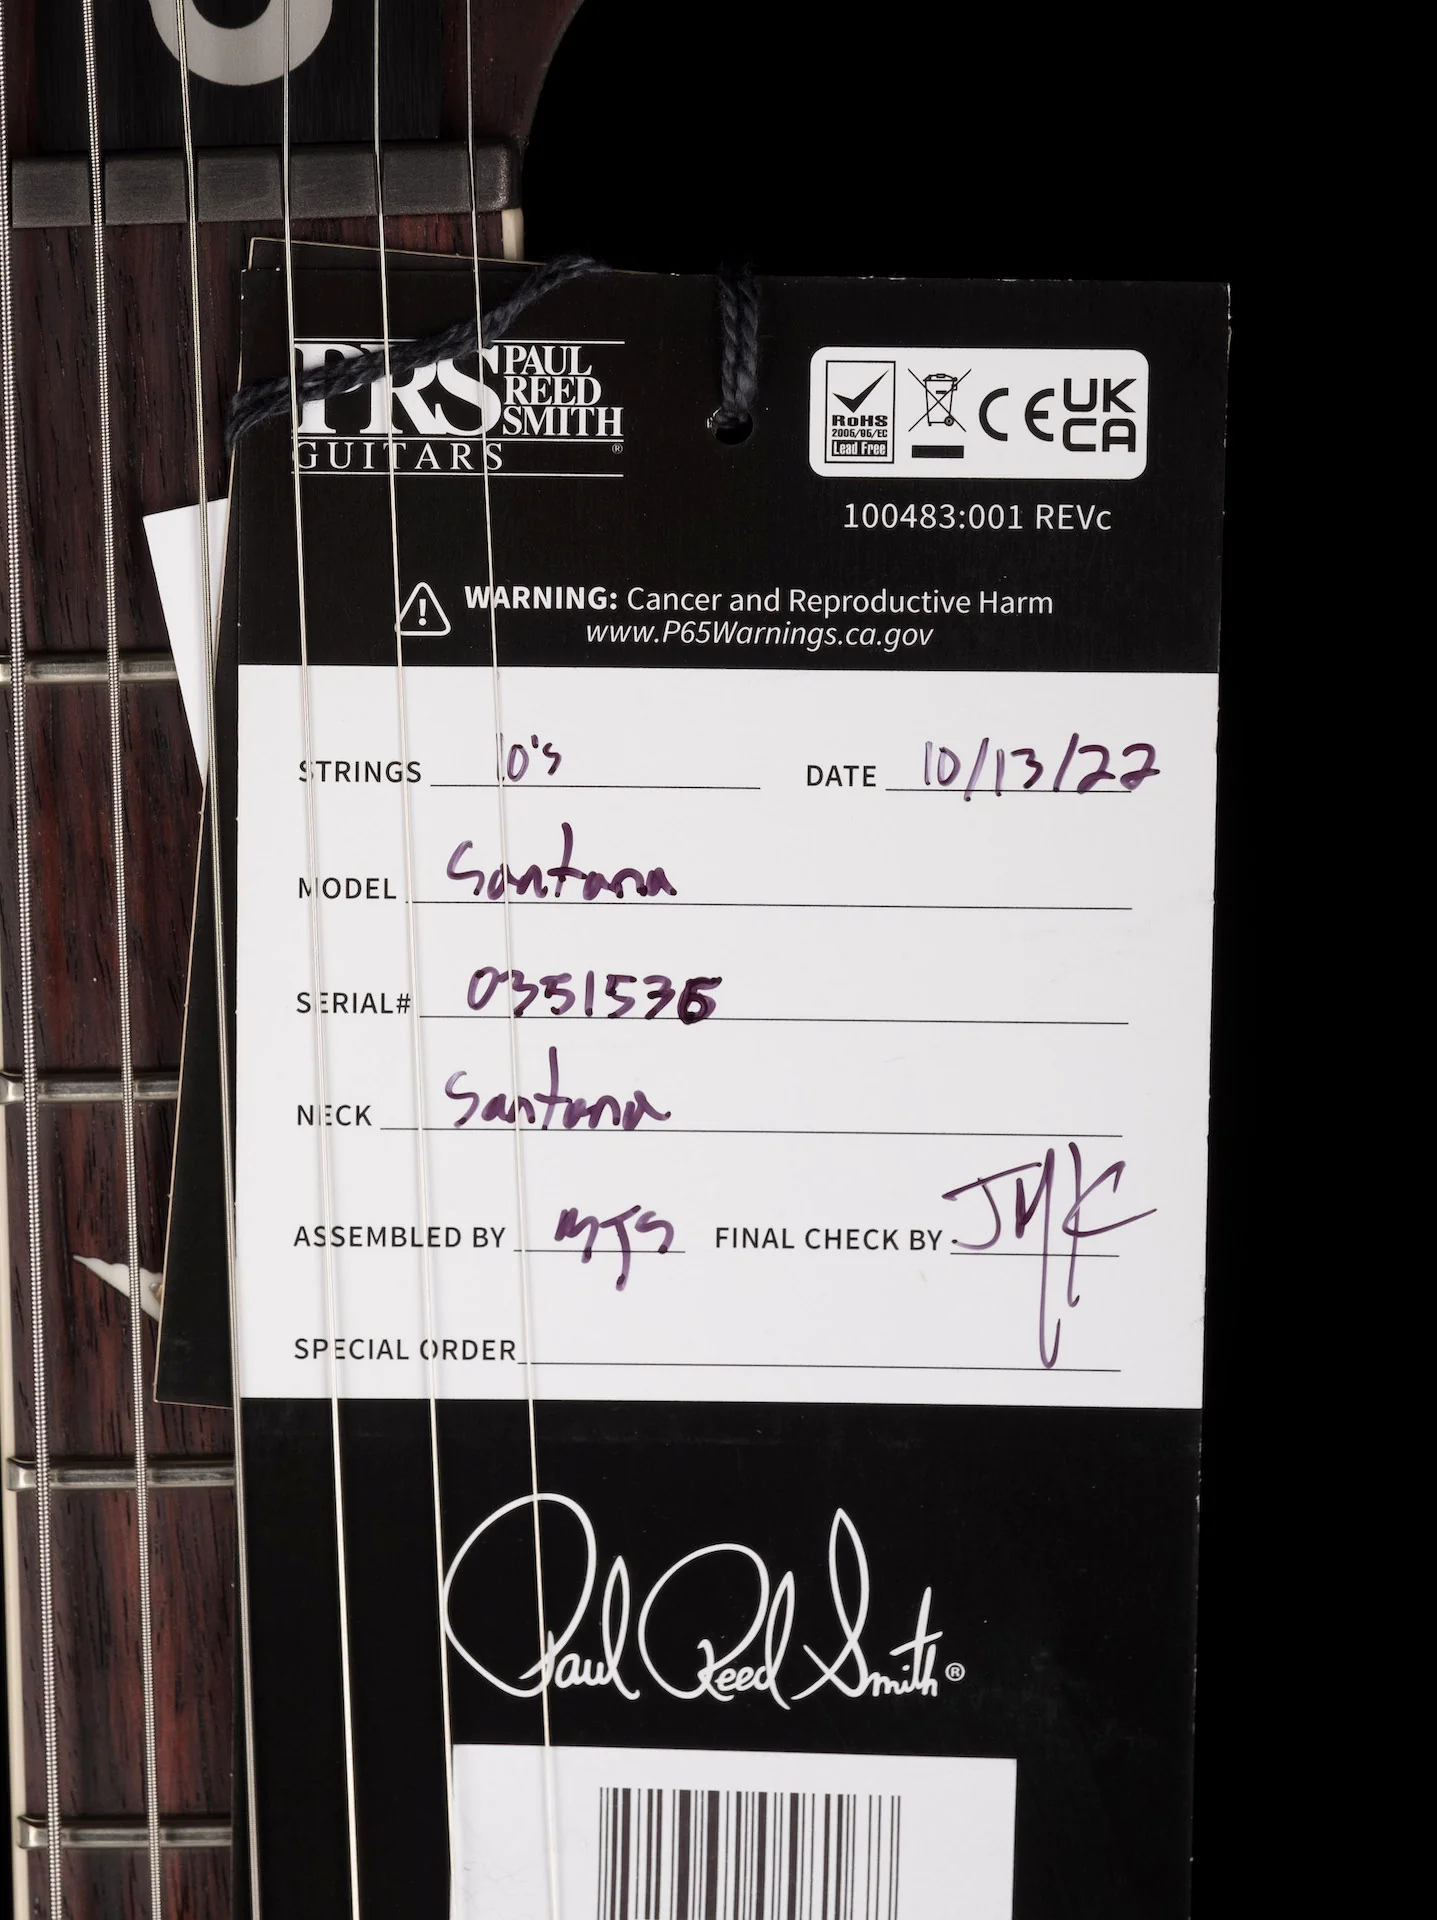 PRS PAUL
REED
SMITH
GUITARS ®
RoHS
2005/95/EC
Lead Free
CE UK
CA
100483:001 REVc
WARNING: Cancer and Reproductive Harm
www.P65Warnings.ca.gov
STRINGS 10's DATE 10/13/22
MODEL Santana
SERIAL# 0351536
NECK Santana
ASSEMBLED BY MJS FINAL CHECK BY JMK
SPECIAL ORDER
Paul Reed Smith ®